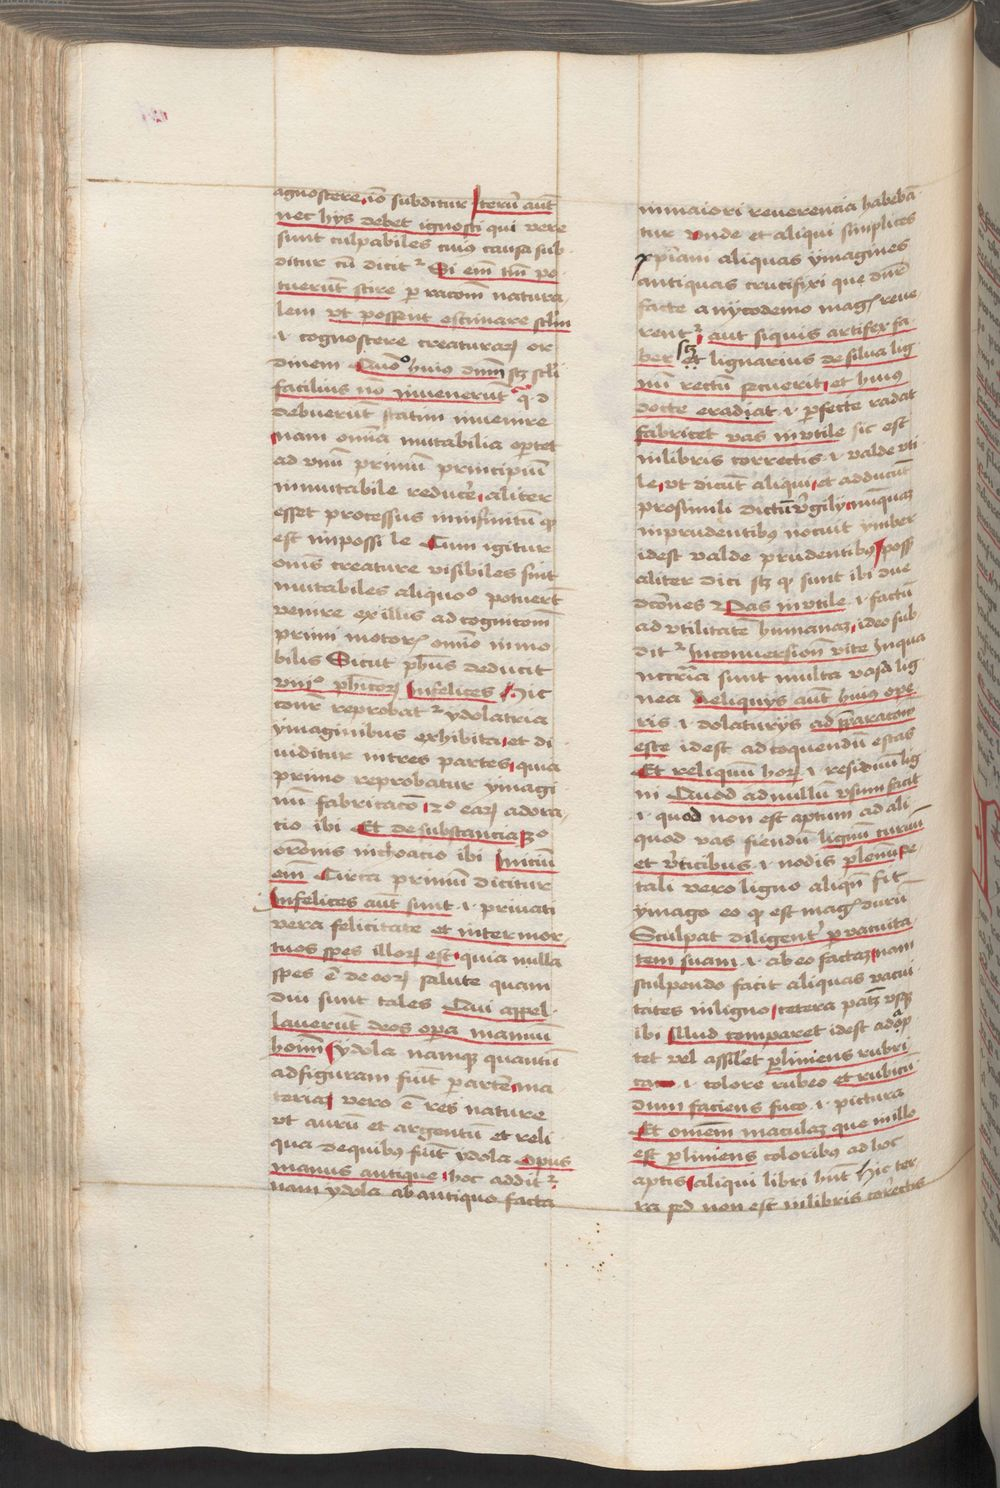 agnoscere io subditur Iterū aut̄
nec hys debet ignosci qui vere
sunt culpabiles cuius causa sub
ditur cū dicit᷑ Si em̄ tm̄ po
tuerūt scire ꝑ racom̄ natura
lem vt possent estimare sclm̄
.i. cognoscere creaturaꝝ or
dinem Quo huius dnm̄ scz scli
facilius no inuenerūt q. d
debuerūt statim inuenire
nam omīa mutabilia oportet
ad vnū primū principiū
inmutabile reducere aliter
esset processus in infinitū qͥ
est impossi le Cum igitur
om̄s creature visibiles sint
mutabiles aliquoᵒ potuerūt
venire ex illis ad cognicom̄
primi motoris om̄io inmo
bilis Sicut phūs deducit
viiiᵒ phicoꝝ Infelices Hic
cōnr̄ reprobat᷑ ydolatria
ymaginibus exhibita et di
uiditur in tres partes quia
primo reprobatur ymagi
nū fabricacō 2ᵒ eaꝝ adora
tio ibi Et de substancia 3ᵒ
oroīnis inchoacio ibi Iniciū
em̄ Circa primū dicitur
Infelices aut̄ sunt .i. priuati
vera felicitate et inter mor
tuos spes illoꝝ est quia nulla
spes ē de eoꝝ salute quam
diu sunt tales Qui appel
lauerūt deos oꝑa manuū
hoīm ydola namqꝫ quantū
ad figuram fiūt ꝑ artem ma
teria vero ē res nature
vt aurū et argentū et reli
qua de quibus fiūt ydola Opus
manus antique hoc addit᷑
nam ydola ab antiquo facta
in maiori reuerencia habebā
tur Vnde et aliqui simplices
xp̄iani aliquas ymagines
antiquas crucifixi que dn̄r
facte a nycodemo mag reue
rent᷑ aut siquis artifex fa
ber scz et lignarius de silua lig
nū rectū secuerit et huius
docte eradiat .i. ꝑfecte radat
fabricet vas invtile sic est
in libris correctis .i. valde vti
le vt dicūt aliqui et adducūt
pro simili dictū virgilij nūquaꝫ
inprudentibus nocuit ymber
idest valde prudentibus posset
aliter dici scz qͥ sunt ibi due
dcōnes Vas in vtile .i. factū
ad vtilitatē humanaꝫ ideo sub
dit᷑ In conuersion vite In qua
necc̄ria sunt multa vasa lig
nea Reliquys aut̄ huius ope
ris .i. dolaturys ad p̄paracōm
esce idest ad coquendū escas
Et reliquū hoꝝ .i. residuū lig
ni Quod ad nullū vsum facit
.i. quod non est aptum ad ali
quod vas fiendū lignū curuū
et v̓ticibus .i. nodis plenū de
tali vero ligno aliqn̄ fit
ymago eo qͥ est mag durū
Sculpat diligent᷑ ꝑ vacuita
tem suam .i. ab eo factaꝫ nam
sculpendo facit aliquas vacui
tates in ligno cetera patꝫ vsqꝫ
ibi Illud comparet idest adap
tet vel assilet ꝑliniens rubri
ca .i. colore rubeo et rubicū
dum faciens fuco .i. pictura
Et omēm maculaꝫ que in illo
est ꝑliniens coloribus ad hoc
aptis aliqui libri hn̄t hic ter
ra sed non est in libris correctis